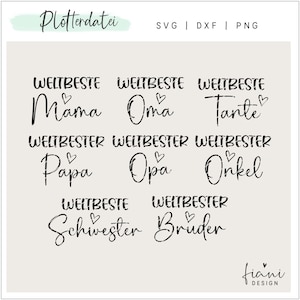 Plotterdatei
SVG | DXF | PNG
WELTBESTE WELTBESTE WELTBESTE
Mama Oma Tante
WELTBESTER WELTBESTER WELTBESTER
Papa Opa Onkel
WELTBESTE WELTBESTER
Schwester Bruder
fiani
DESIGN